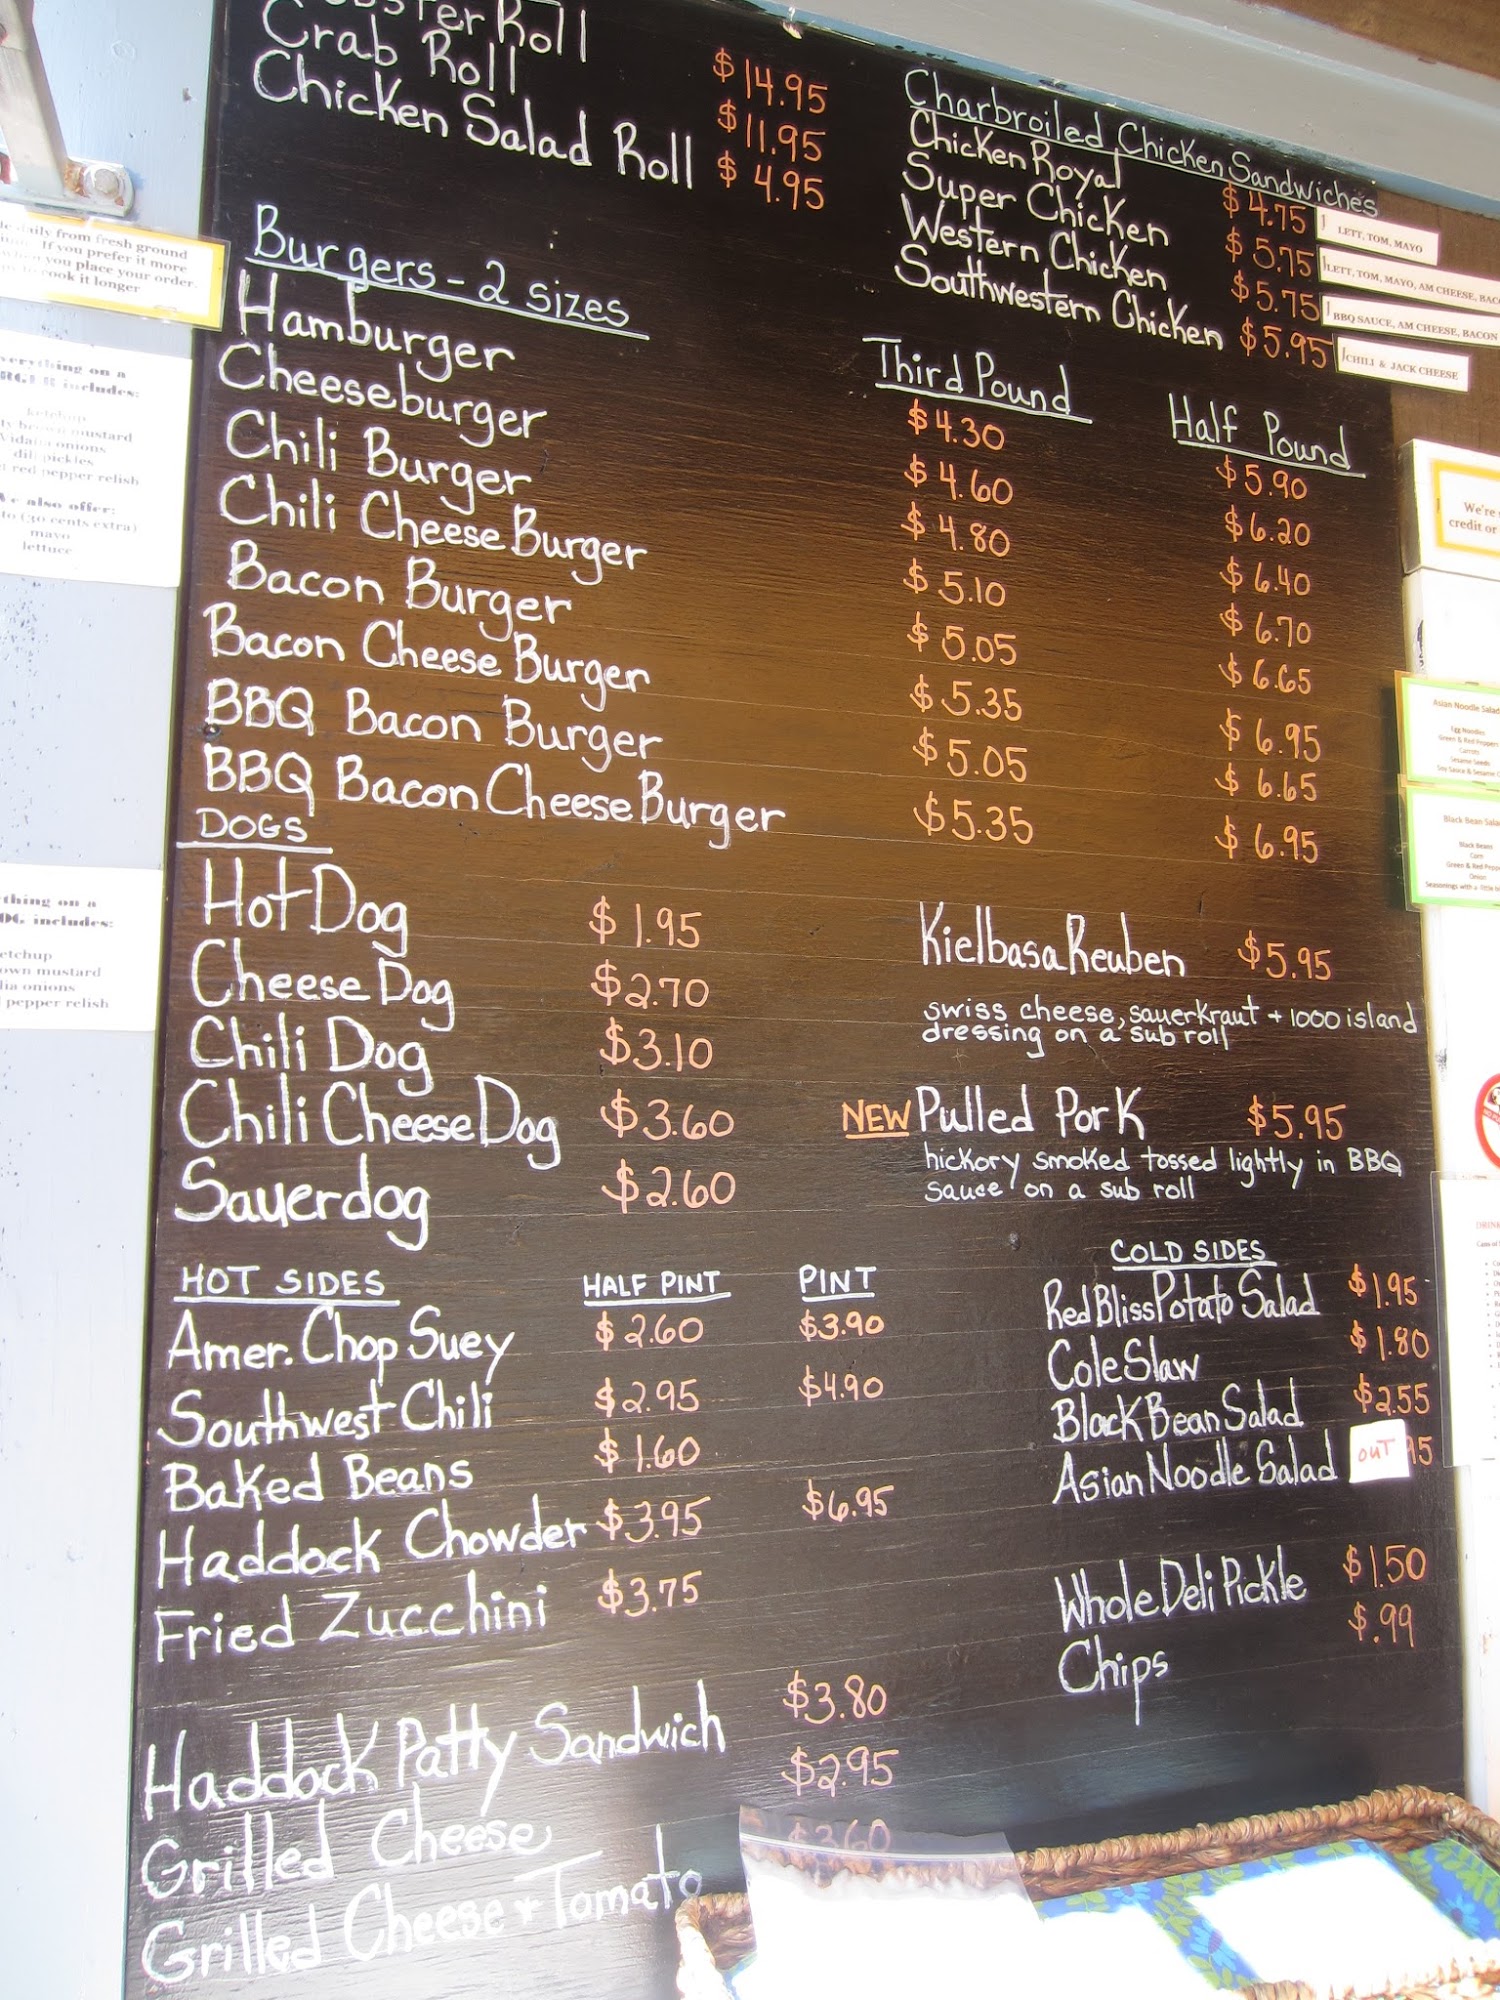 Roll
Crab Roll $14.95
Chicken Salad Roll $11.95
$4.95
Charbroiled Chicken Sandwiches
Chicken Royal $4.75 LETT, TOM, MAYO
Super Chicken $5.75 LETT, TOM, MAYO, AM CHEESE,
Western Chicken $5.75 BBQ SAUCE, AM CHEESE, BACON
Southwestern Chicken $5.95 CHILI & JACK CHEESE
daily from fresh ground
If you prefer it more
you place your order.
cook it longer
Burgers - 2 sizes
Third Pound Half Pound
Hamburger $4.30 $5.90
Cheeseburger $4.60 $6.20
Chili Burger $4.80 $6.40
Chili Cheese Burger $5.10 $6.70
Bacon Burger $5.05 $6.65
Bacon Cheese Burger $5.35 $6.95
BBQ Bacon Burger $5.05 $6.65
BBQ Bacon Cheese Burger $5.35 $6.95
on a
includes:
ketchup
mustard
Vidalia onions
dill pickles
red pepper relish
also offer:
(30 cents extra)
mayo
lettuce
We're
credit or
Asian Noodle Salad
Egg Noodles
Green & Red Peppers
Carrots
Sesame Seeds
Soy Sauce & Sesame
Black Bean
Black Beans
Corn
Green & Red
Onion
Seasonings with a little
DOGS
Hot Dog $1.95
Cheese Dog $2.70
Chili Dog $3.10
Chili Cheese Dog $3.60
Sauerdog $2.60
on a
includes:
mustard
onions
pepper relish
Kielbasa Reuben $5.95
swiss cheese, sauerkraut + 1000 island
dressing on a sub roll
NEW Pulled Pork $5.95
hickory smoked tossed lightly in BBQ
sauce on a sub roll
HOT SIDES HALF PINT PINT
Amer. Chop Suey $2.60 $3.90
Southwest Chili $2.95 $4.90
Baked Beans $1.60
Haddock Chowder $3.95 $6.95
Fried Zucchini $3.75
COLD SIDES
Red Bliss Potato Salad $1.95
Cole Slaw $1.80
Black Bean Salad $2.55
Asian Noodle Salad OUT 95
Whole Deli Pickle $1.50
Chips $.99
Haddock Patty Sandwich $3.80
Grilled Cheese $2.95
Grilled Cheese + Tomato $3.60